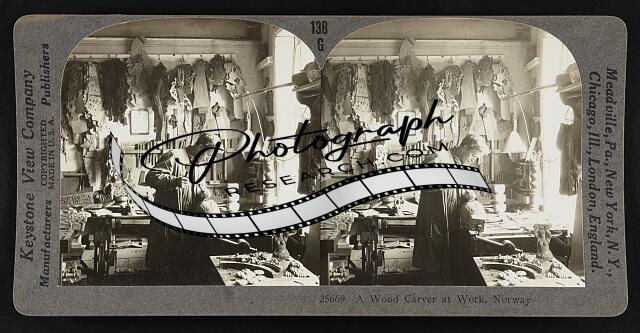 Keystone View Company
COPYRIGHTED
MADE IN U.S.A.
Manufacturers
Publishers
138
G
Photograph
RESEARCH.COM
Meadville, Pa., New York, N.Y.,
Chicago, Ill., London, England.
25669 A Wood Carver at Work, Norway